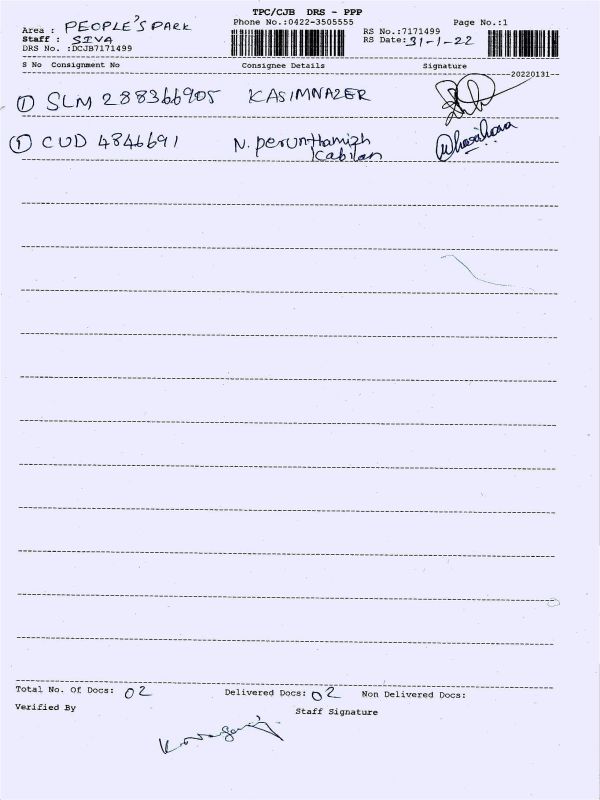 TPC/CJB DRS - PPP
Area : PEOPLE'S PARK Phone No.:0422-3505555 Page No.:1
Staff : SIVA RS No.:7171499
DRS No. :DCJB7171499 RS Date:31-1-22
S No Consignment No Consignee Details Signature
20220131
① SLM 288366905 KASIMNAZER
① CUD 4846691 N. perunthamizh
Kabilan
Total No. Of Docs: 02 Delivered Docs: 02 Non Delivered Docs:
Verified By Staff Signature